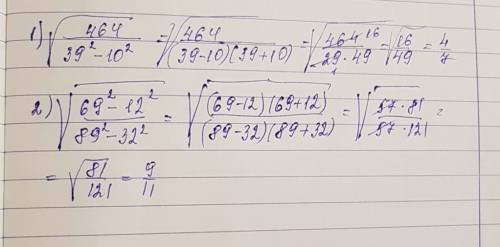 1) √(464 / (39² - 10²)) = √(464 / ((39-10)(39+10))) = √(464 16 / (29 · 49)) 1 = √(16/49) = 4/7
2) √((69² - 12²) / (89² - 32²)) = √((69-12)(69+12) / ((89-32)(89+32))) = √((57 · 81) / (57 · 121)) =
= √(81/121) = 9/11